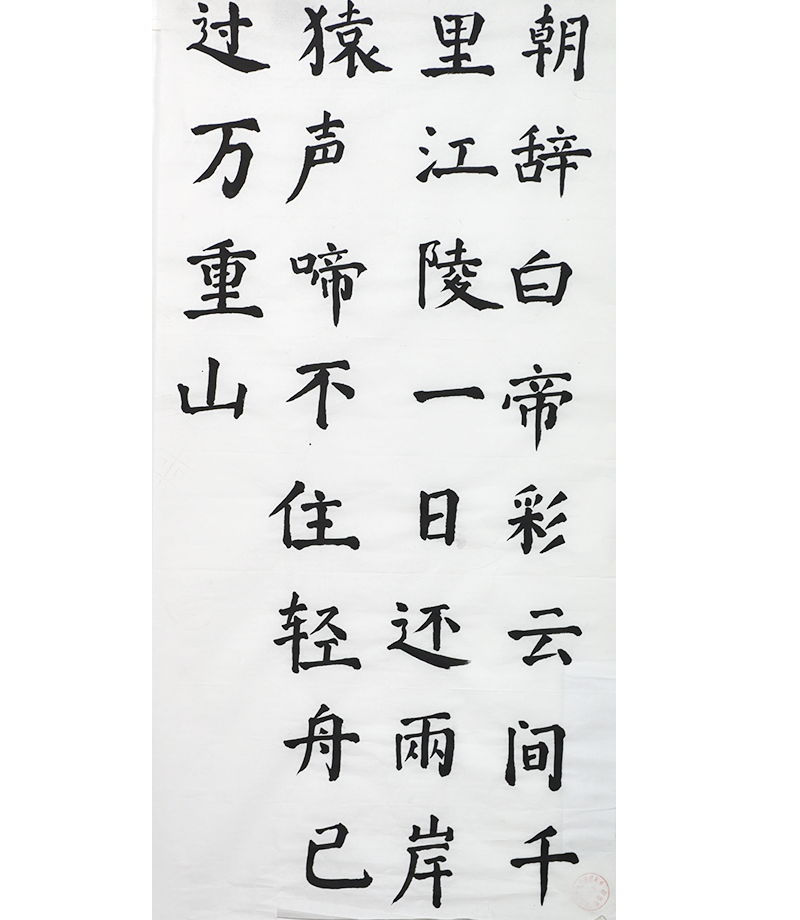 朝辞白帝彩云间千
里江陵一日还兩岸
猿声啼不住轻舟已
过万重山